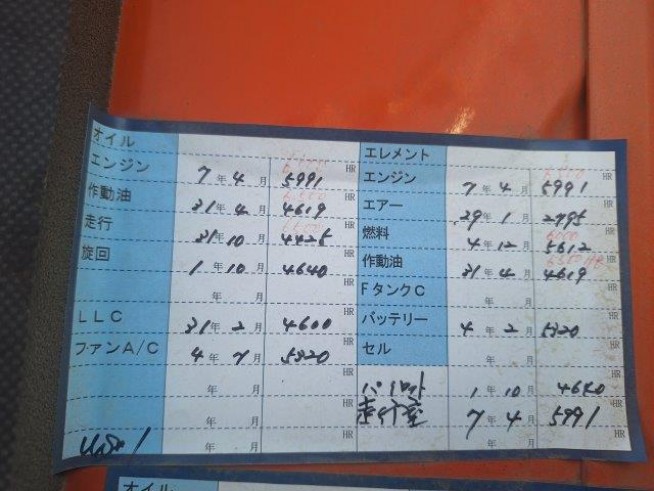 オイル
エンジン 7年 4月 5991 HR
作動油 31年 4月 4619 HR
走行 31年 10月 4425 HR
旋回 1年 10月 4640 HR
年 月 HR
LLC 31年 2月 4600 HR
ファンA/C 4年 7月 5320 HR
年 月 HR
年 月 HR
年 月 HR
エレメント
エンジン 7年 4月 5991 HR
エアー 29年 1月 2795 HR
燃料 4年 12月 5612 HR
作動油 31年 4月 4619 HR
FタンクC 年 月 HR
バッテリー 4年 2月 5320 HR
セル 年 月 HR
パイロット 1年 10月 4640 HR
7年 4月 5991 HR
年 月 HR
オイル